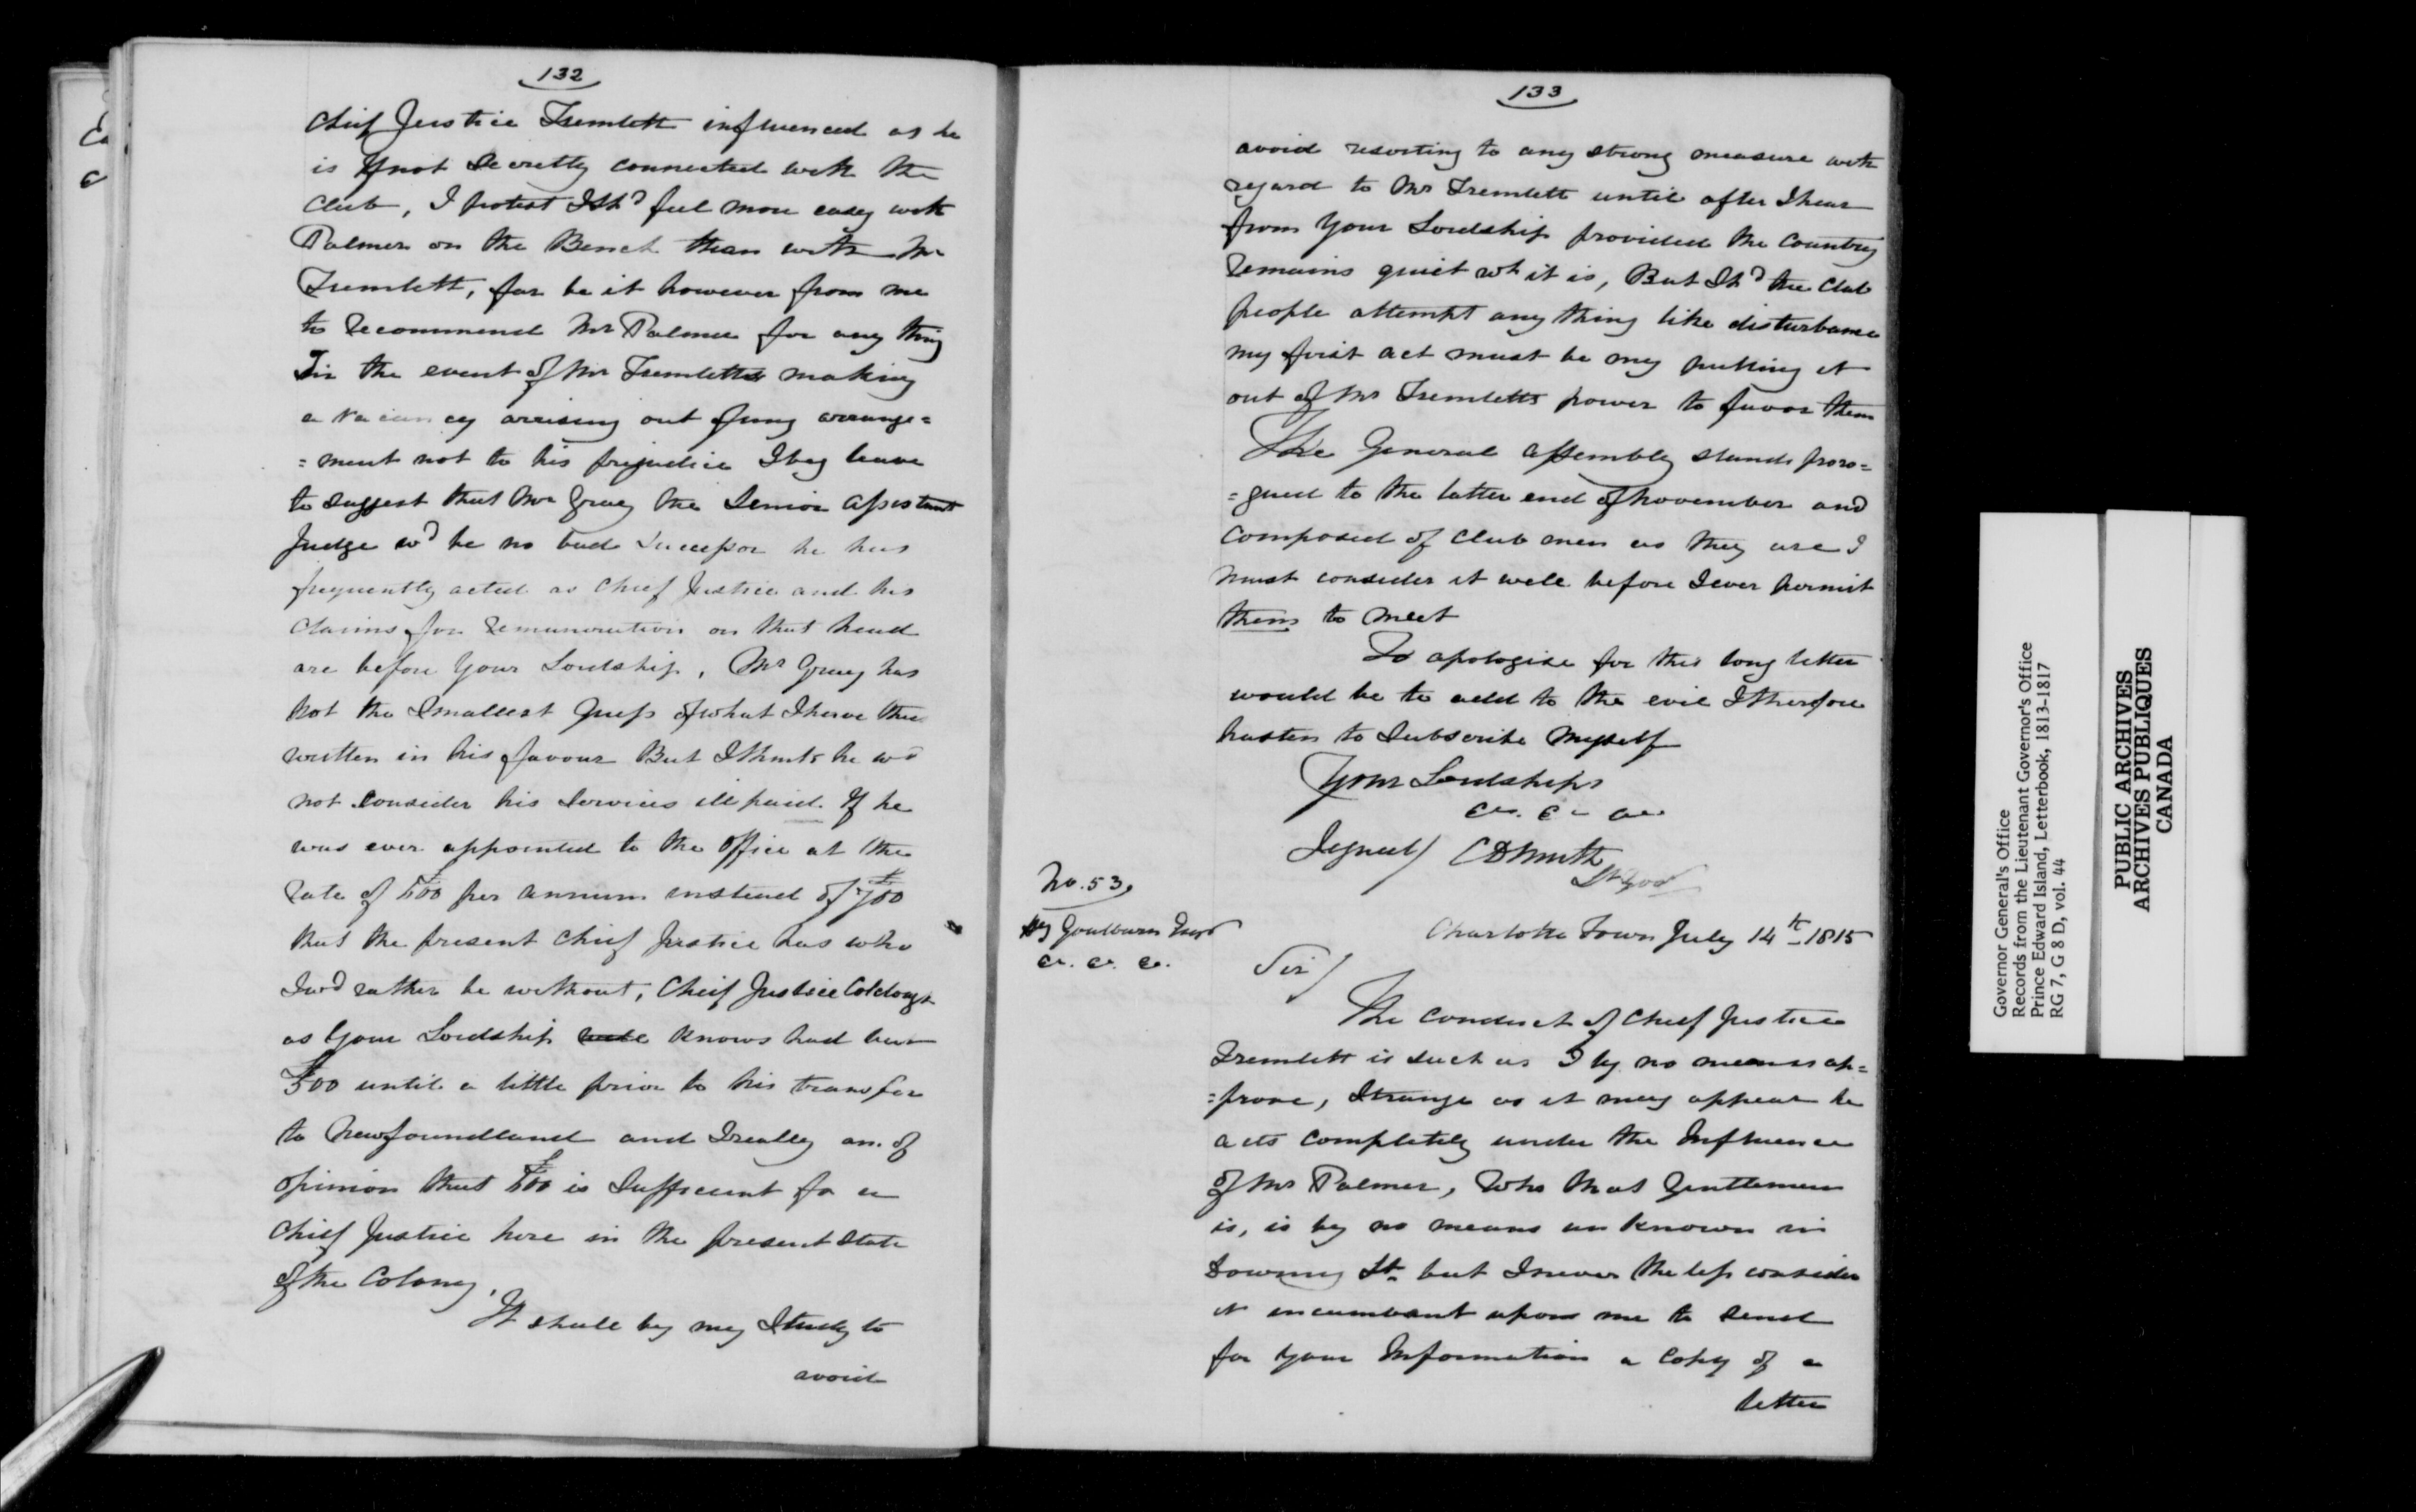 132
Chief Justice Tremlett influenced as he
is if not Secretly connected with the
Club, I protest I Shd feel more easy with
Palmer on the Bench than with Mr
Tremlett, far be it however from me
to Recommend Mr Palmer for any thing
In the event of Mr Tremletts making
a Vacancy arrising out of any arrange=
=ment not to his prejudice I beg leave
to Suggest that Mr Gray the Senior Assistant
Judge wd be no bad Successor he has
frequently acted as Chief Justice and his
Claims for Remuneration on that head
are before Your Lordship, Mr Gray has
not the Smallest Guess of what I have thus
written in his favour But I think he wd
not Consider his Services ill paid If he
was ever appointed to the office at the
Rate of £500 per annum instead of £700
that the present Chief Justice has who
I wd rather be without, Chief Justice Colclough
as Your Lordship well knows had but
£500 until a little prior to his transfer
to Newfoundland and I really am of
opinion that £500 is Sufficient for a
Chief Justice here in the present State
of the Colony,
It shall by my Study to
avoid
133
avoid resorting to any strong measure with
regard to Mr Tremlett until after I hear
from Your Lordship provided the Country
Remains quiet wh it is, But Shd the Club
people attempt any thing like disturbance
my first act must be my putting it
out of Mr Tremletts power to favor them
The General Assembly stands proro=
=gued to the latter end of November and
Composed of Club men as they are I
must consider it well before I ever permit
them to meet
To apologise for this long letter
would be to add to the evil I therefore
hasten to Subscribe Myself
Your Lordships
&c. &c. &c.
Signed/ CD Smith
Lt Govr
No. 53,
Hy Goulburn Esqr
&c. &c. &c.
Charlotte Town July 14th 1815
Sir/
The Conduct of Chief Justice
Tremlett is such as I by no means ap=
=prove, Strange as it may appear he
acts Completely under the Influence
of Mr Palmer, Who that Gentleman
is, is by no means unknown in
Downing St. but I never the less consider
it incumbant upon me to Send
for your Information a Copy of a
letter
Governor General's Office
Records from the Lieutenant Governor's Office
Prince Edward Island, Letterbook, 1813-1817
RG 7, G 8 D, vol. 44
PUBLIC ARCHIVES
ARCHIVES PUBLIQUES
CANADA